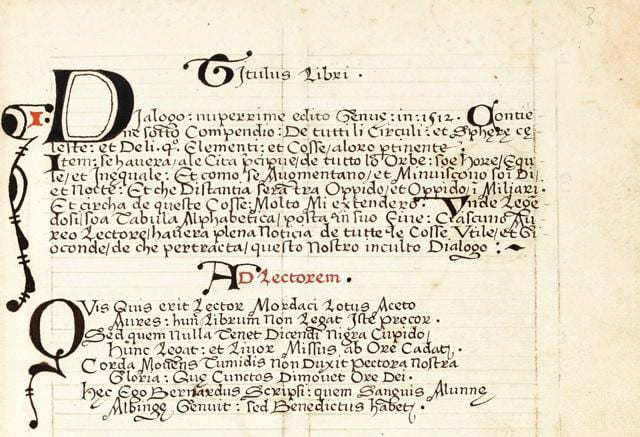 3
Titulus Libri ·
I·
DIalogo: nuperrime edito Genue: in: 1512. Contie
ne sotto Compendio: De tutti li Circuli: et Sphere ce
leste: et De li. q°. Elementi: et Cosse/ aloro ptinente
Item: se havera/ ale Cita pcipue/ de tutto lo Orbe: soe Hore/ Equa
le/ et Inequale: Et como se Augmentano/ et Minuiscono soi Di/
et Nocte: Et che Distantia sera tra Oppido/ et Oppido/ i Miliari.
Et circha de queste Cosse/ Molto Mi extendero. Unde Lege
dosi/ soa Tabula Alphabetica/ posta in suo Fine: Ciascuno Au
reo Lectore/ havera plena Noticia de tutte le Cosse Utile/ et Gi
oconde/ de che pertracta/ questo Nostro inculto Dialogo :~
AD Lectorem ·
QVis Quis erit Lector Mordaci Lotus Aceto
Aures: hun Librum Non Legat Iste precor.
Sed quem Nulla Tenet Dicendi Nigra Cupido/
Hunc Legat: et Livor Missus ab Ore Cadat.
Corda Movens Tumidis Non Duxit Pectora Nostra
Gloria: Que Cunctos Dimovet Ore Dei.
Hec Ego Bernardus Scripsi: quem Sanguis Alunne
Albinge Genuit: sed Benedictus habet.